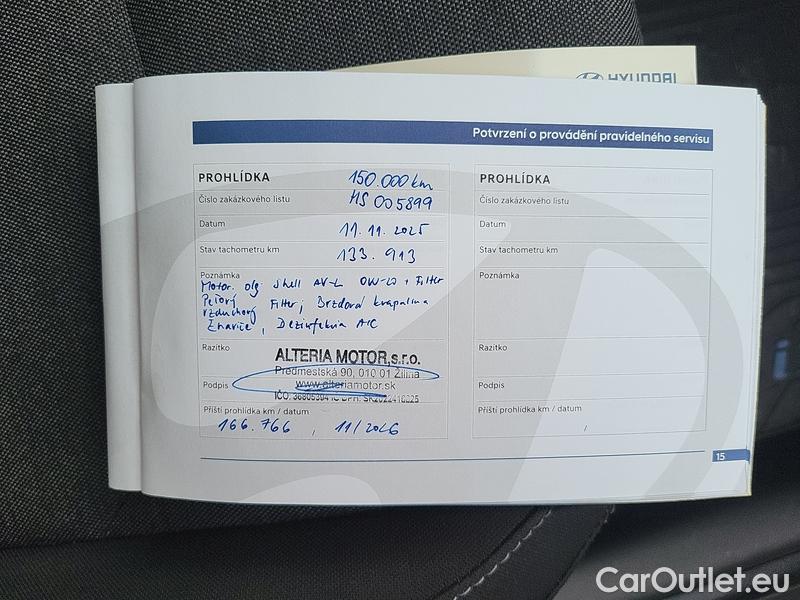 HYUNDAI
Potvrzení o provádění pravidelného servisu
PROHLÍDKA 150.000 km
Číslo zakázkového listu HS 005899
Datum 11.11.2025
Stav tachometru km 133.913
Poznámka
Motor. olej Shell AV-L 0W-20 + Filter
Peľový Filter, Brzdová kvapalina
Vzduchový
Dezinfekcia A/C
Razítko
ALTERIA MOTOR, s.r.o.
Predmestská 90, 010 01 Žilina
www.alteriamotor.sk
Podpis
Příští prohlídka km / datum
166.766, 11/2026
PROHLÍDKA
Číslo zakázkového listu
Datum
Stav tachometru km
Poznámka
Razítko
Podpis
Příští prohlídka km / datum
/
15
CarOutlet.eu